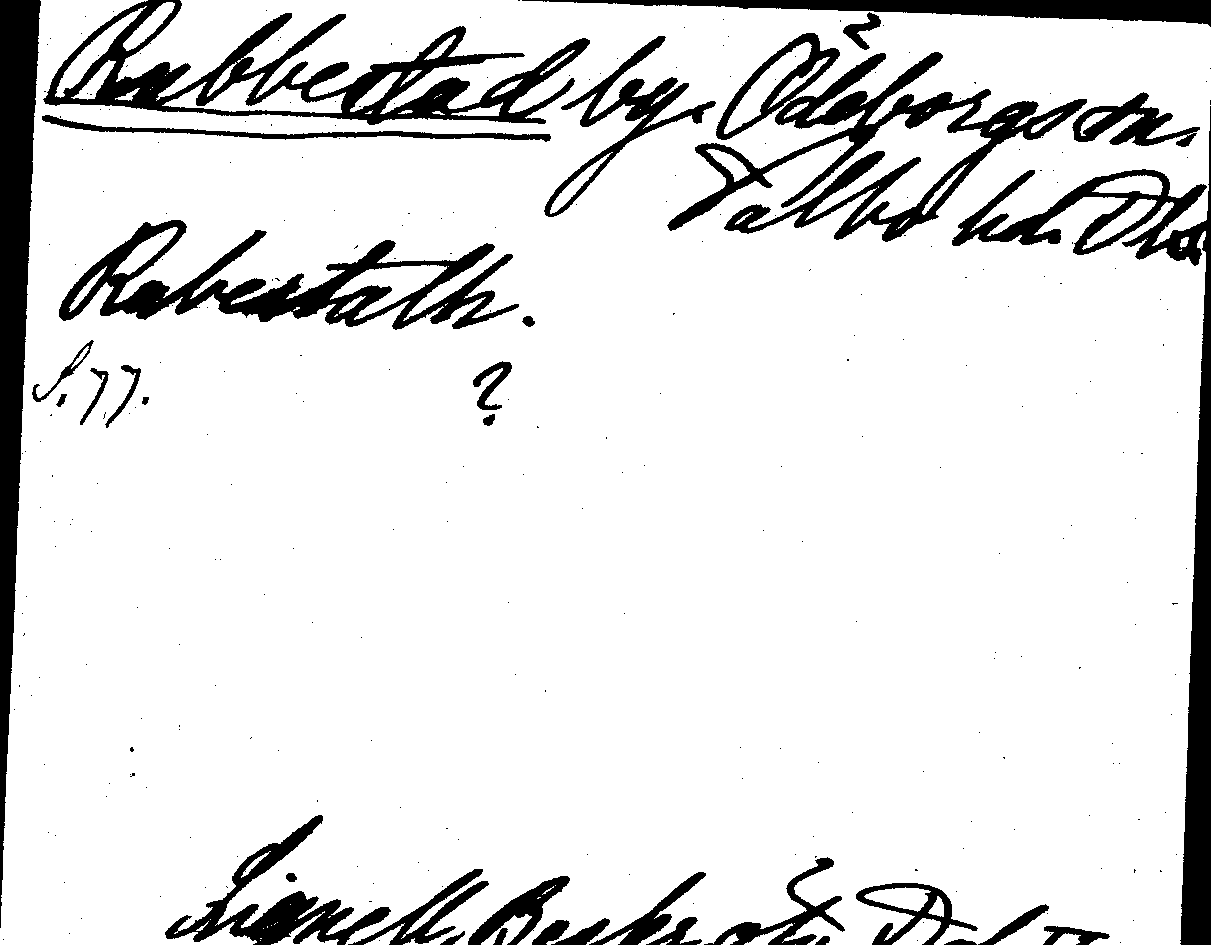 Rabbestad by. Ödeborgs sn.
Valbo hd. Dls.
Rabestath.
S. 77. ?
Lignell, Beskr. öfv. Dal II